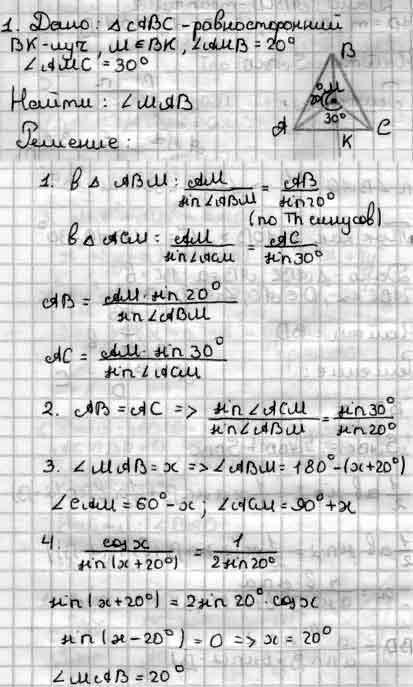 1. Дано: △ ABC - равносторонний
BK - луч, M ∈ BK, ∠AMB = 20°
∠AMC = 30°
Найти: ∠MAB.
Решение:
B
M
20°
30°
A
K
C
1. В △ ABM: AM / sin∠ABM = AB / sin20°
(по Th синусов)
В △ ACM: AM / sin∠ACM = AC / sin30°
AB = AM · sin 20° / sin∠ABM
AC = AM · sin 30° / sin∠ACM
2. AB = AC => sin∠ACM / sin∠ABM = sin30° / sin20°
3. ∠MAB = x => ∠ABM = 180° - (x+20°)
∠CAM = 60° - x ; ∠ACM = 90° + x
4. cos x / sin(x+20°) = 1 / 2sin20°
sin(x+20°) = 2sin 20° · cos x
sin(x-20°) = 0 => x = 20°
∠MAB = 20°